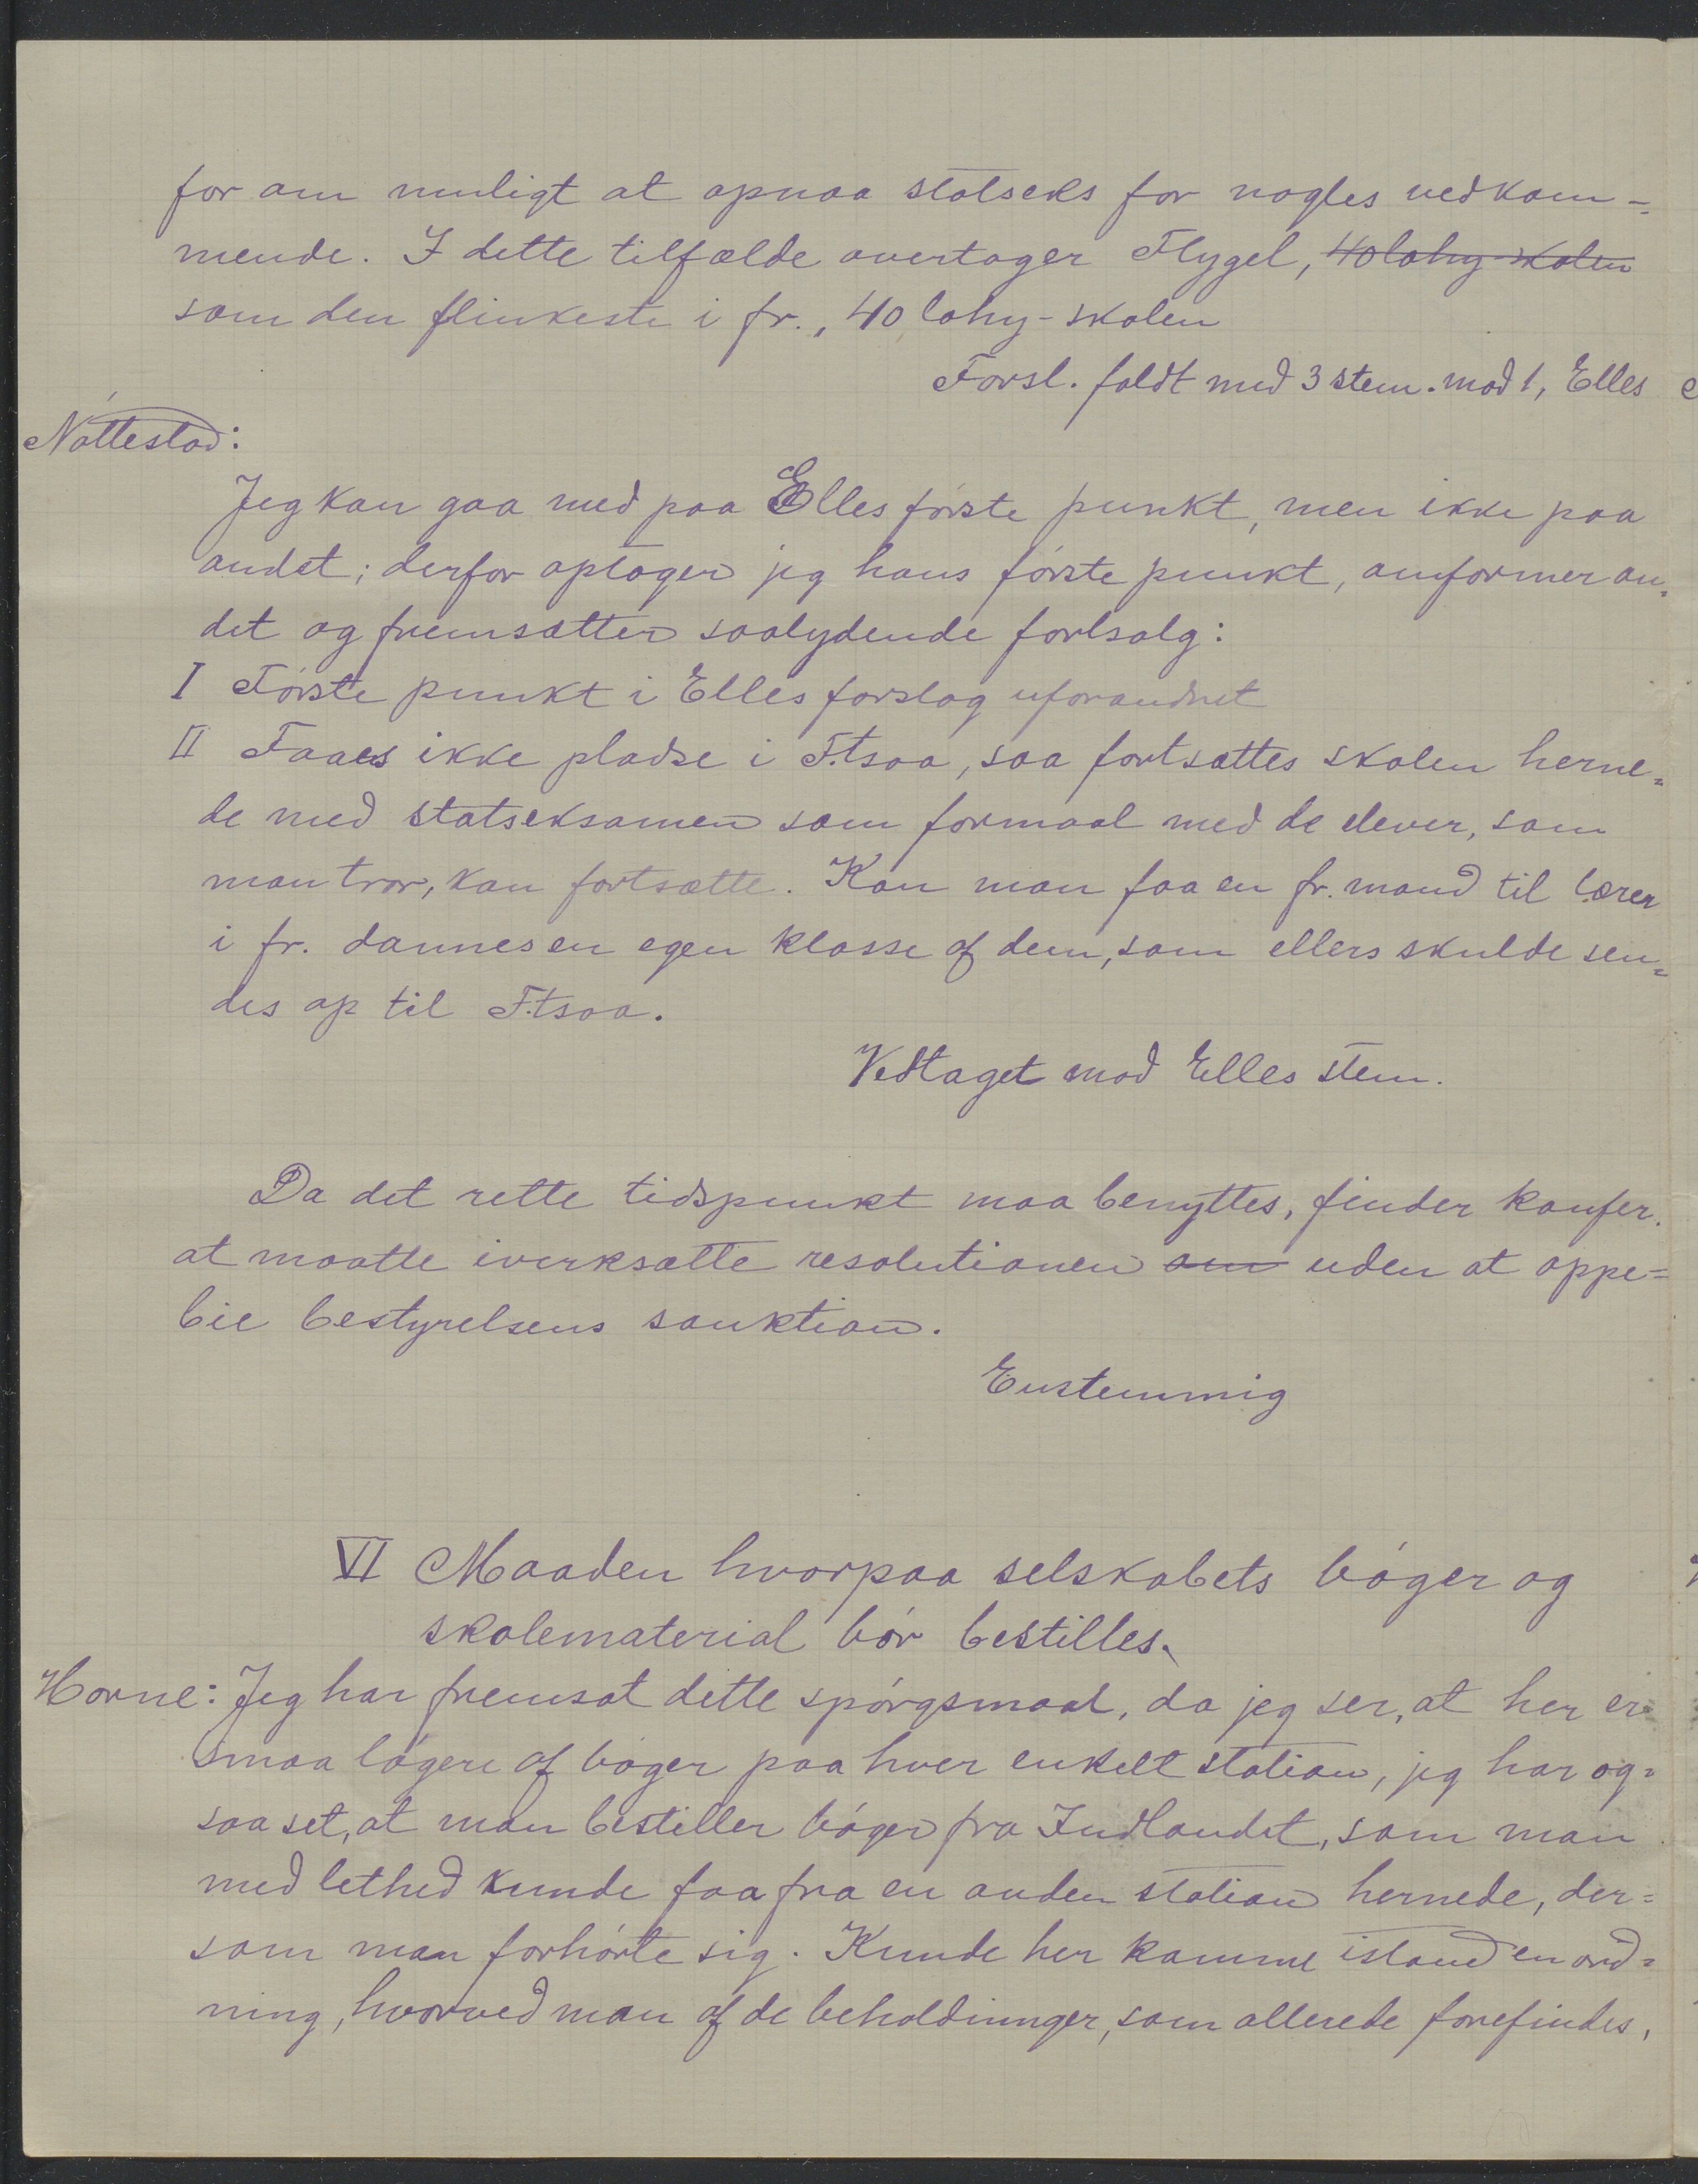 for om muligt at opnaa statseks for nogles vedkom-
mende. I dette tilfælde overtager Flygel, 40 lahy-skolen
som den flinkeste i fr., 40 lahy-skolen
Forsl. faldt med 3 stem. mod 1, Elles
Nøttestad:
Jeg kan gaa med paa Elles første punkt, men ikke paa
andet; derfor optager jeg hans første punkt, omformer an=
det og fremsætter saalydende forlsag:
I Første punkt i Elles forslag uforandret
II Faaes ikke pladse i F.tsoa, saa fortsættes skolen herne=
de med statseksamen som formaal med de elever, som
man tror, kan fortsætte. Kan man faa en fr. mand til lærer
i fr. dannes en egen klasse af dem, som ellers skulde sen=
des op til F.tsoa.
Vedtaget mod Elles stem.
Da det rette tidspunkt maa benyttes, finder konfer.
at maatte iverksætte resolutionen om uden at oppe=
bie bestyrelsens sanktion.
Enstemmig
VI Maaden hvorpaa selskabets bøger og
skolematerial bør bestilles.
Horne: Jeg har fremsat dette spørgsmaal, da jeg ser, at her er
smaa lagere af bøger paa hver enkelt station, jeg har og=
saa set, at man bestiller bøger fra Indlandet, som man
med lethed kunde faa fra en anden station hernede, der=
som man forhørte sig. Kunde her komme istand en ord=
ning, hvorved man af de beholdninger, som allerede forefindes,